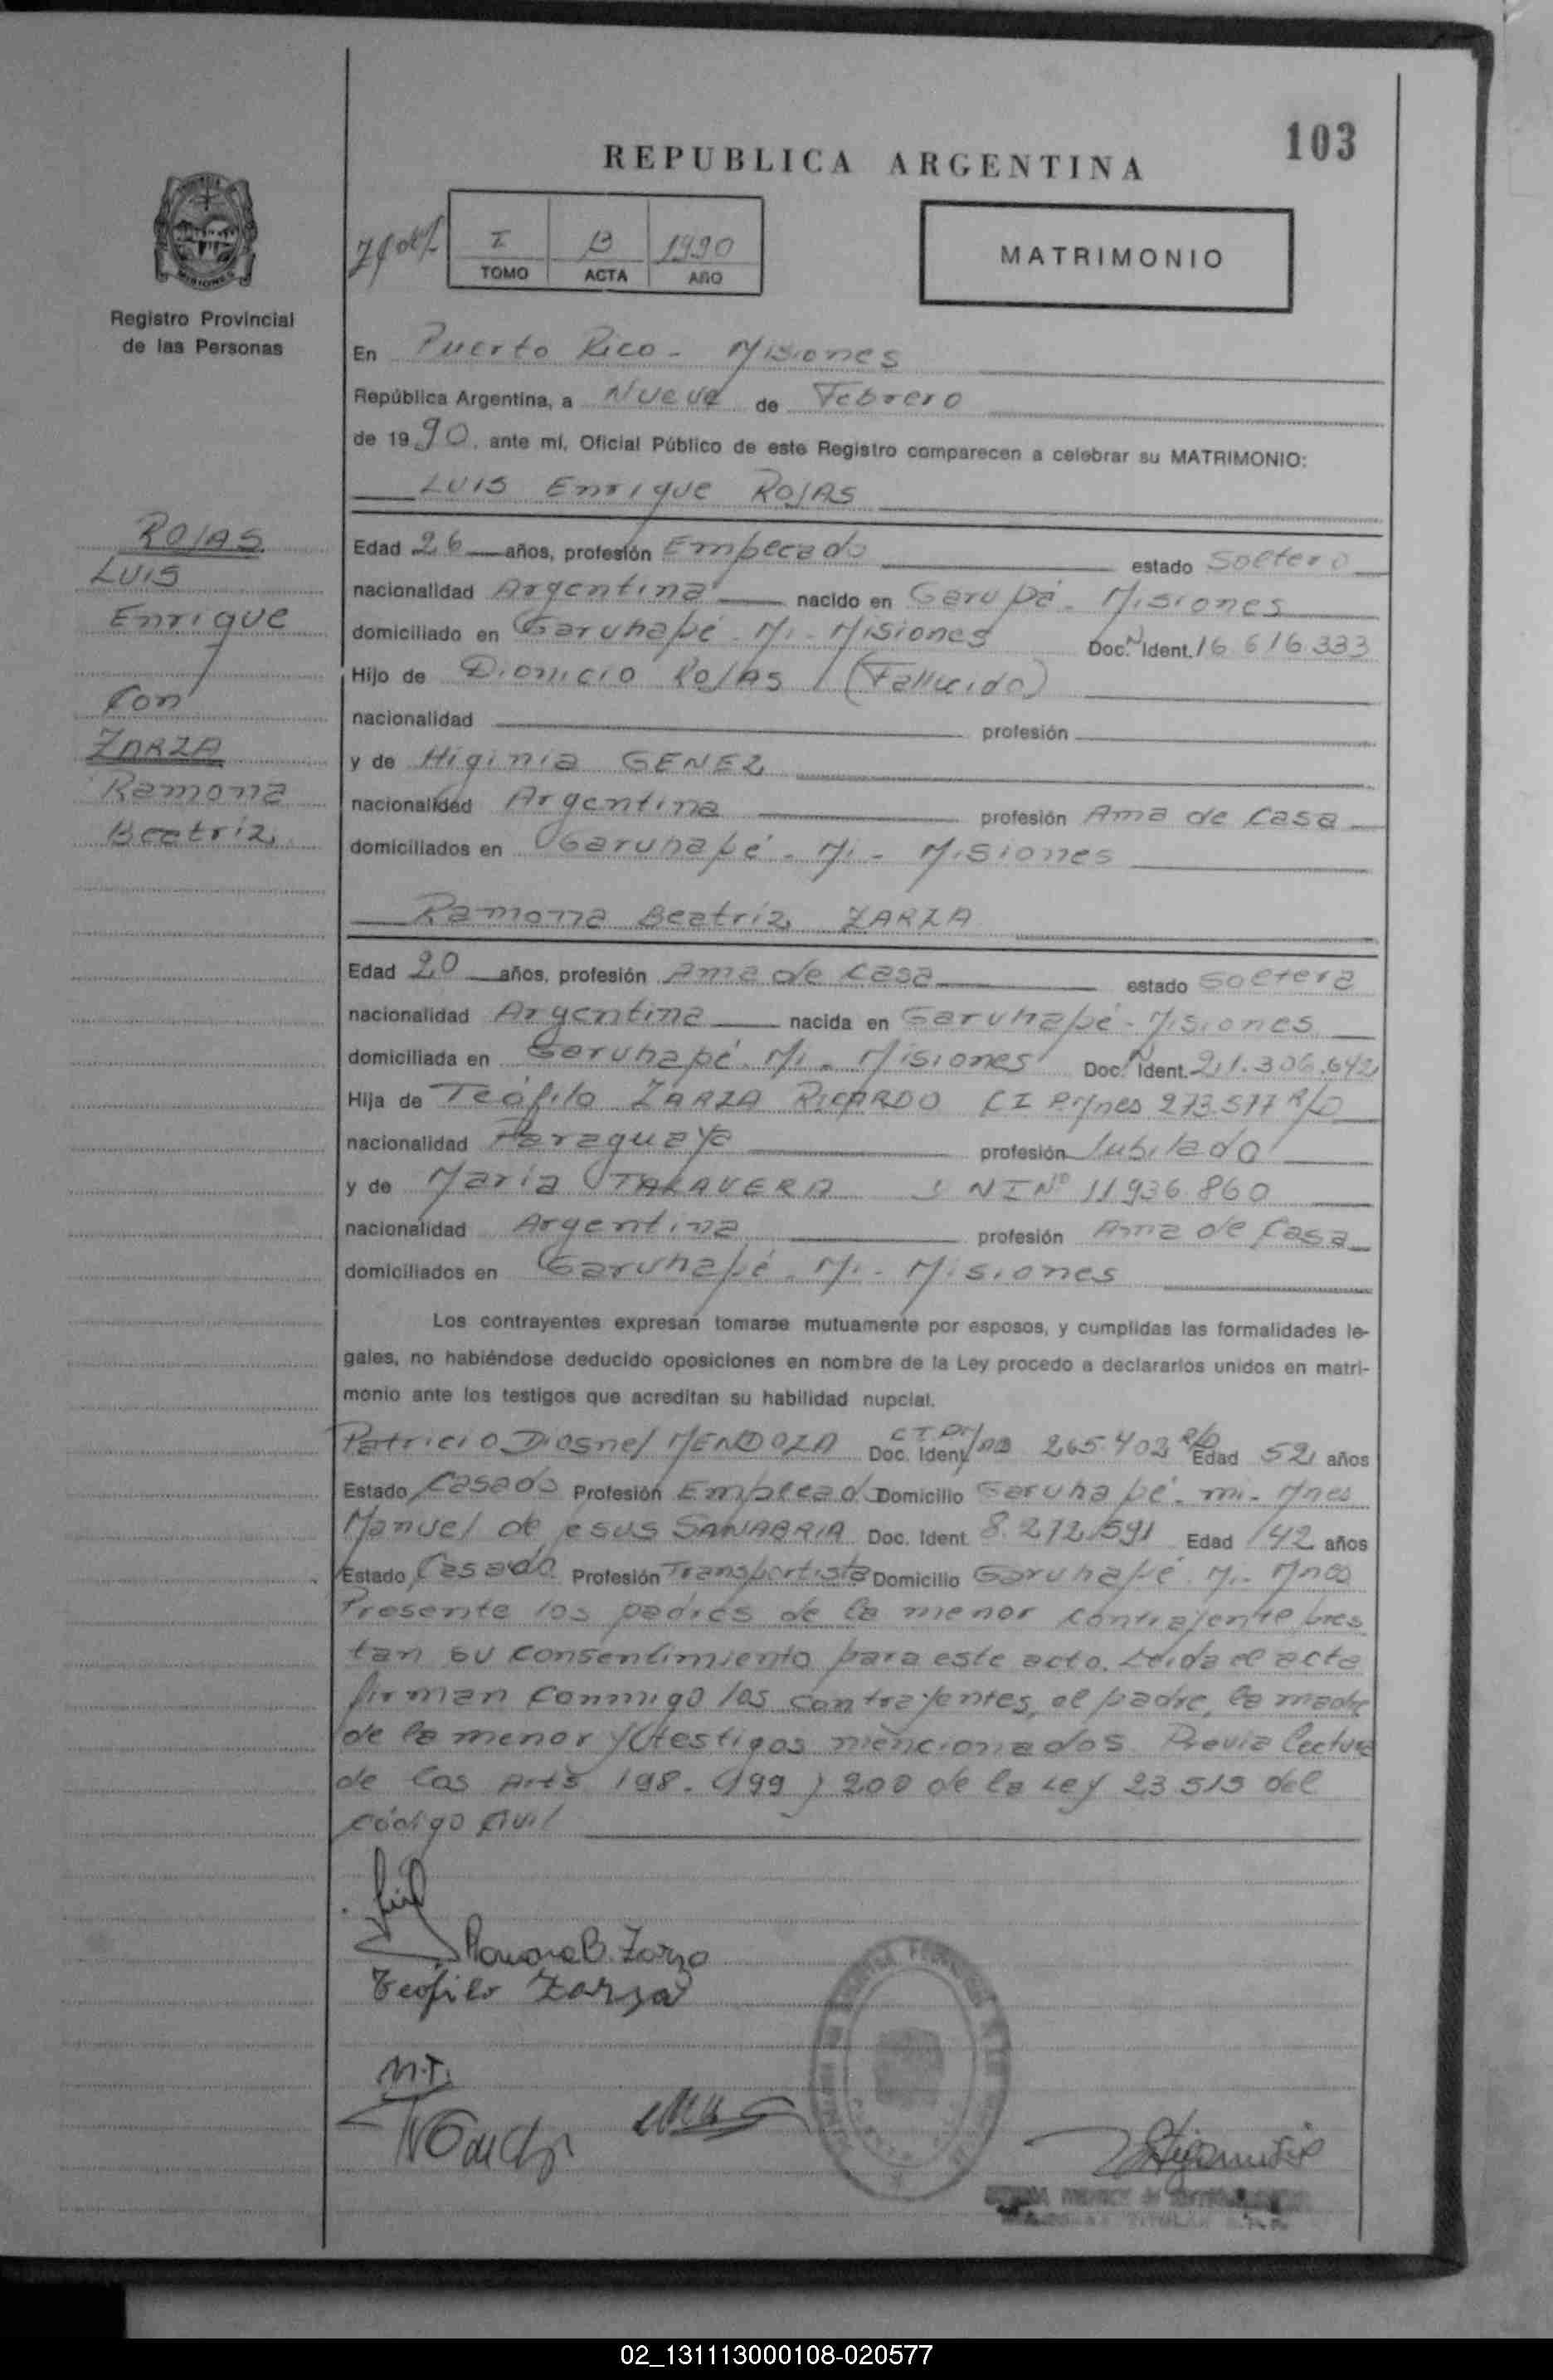 103
REPUBLICA ARGENTINA
I 13 1990
TOMO ACTA AÑO
MATRIMONIO
MISIONES
Registro Provincial
de las Personas
En Puerto Rico - Misiones
República Argentina, a Nueve de Febrero
de 1990, ante mí, Oficial Público de este Registro comparecen a celebrar su MATRIMONIO:
LUIS Enrique ROJAS
ROJAS
LUIS
Enrique
y
Con
ZARZA
Ramona
Beatriz
Edad 26 años, profesión Empleado estado Soltero
nacionalidad Argentina nacido en Garupá - Misiones
domiciliado en Garuhapé - Mi - Misiones Doc. N Ident. 16.616.333
Hijo de Dionicio ROJAS (Fallecido)
nacionalidad profesión
y de Higinia GENEZ
nacionalidad Argentina profesión Ama de Casa
domiciliados en Garuhapé - Mi - Misiones
Ramona Beatriz ZARZA
Edad 20 años, profesión Ama de Casa estado Soltera
nacionalidad Argentina nacida en Garuhapé - Misiones
domiciliada en Garuhapé - Mi - Misiones Doc. N Ident. 21.306.642
Hija de Teófilo ZARZA RICARDO CI P/Mnes 273.577 R/O
nacionalidad Paraguaya profesión Jubilado
y de María TALAVERA NI Nº 11936.860
nacionalidad Argentina profesión Ama de Casa
domiciliados en Garuhapé - Mi - Misiones
Los contrayentes expresan tomarse mutuamente por esposos, y cumplidas las formalidades le-
gales, no habiéndose deducido oposiciones en nombre de la Ley procedo a declararlos unidos en matri-
monio ante los testigos que acreditan su habilidad nupcial.
Patricio Diosnel MENDOZA Doc. Ident. 265.402 R/O Edad 52 años
Estado Casado Profesión Emplead. Domicilio Garuhapé - mi - Mnes
Manuel de jesus SANABRIA Doc. Ident. 8.272.591 Edad 42 años
Estado Casado Profesión Transportista Domicilio Garuhapé - Mi - Mnes
Presente los padres de la menor contrayente pres
tan su consentimiento para este acto. Leida el acta
firman conmigo los contrayentes, el padre, la madre
de la menor y testigos mencionados. Previa lectura
de los Arts 198 - 199 y 200 de la Ley 23.515 del
código Civil
Ramona B. Zarza
Teofilo Zarza
M.T.
02_131113000108-020577